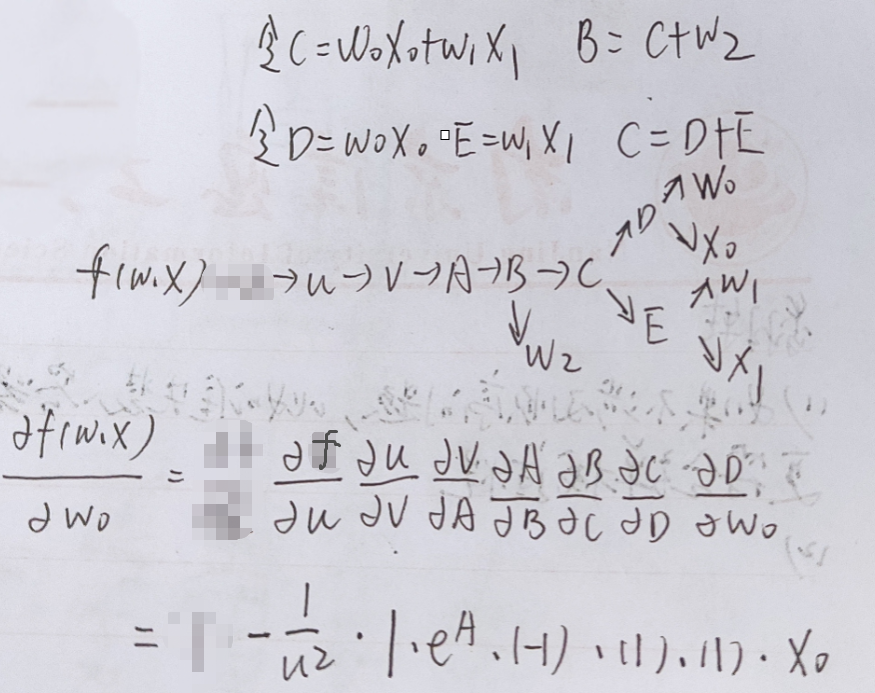 令C=W₀X₀+W₁X₁ B=C+W₂
令D=W₀X₀ E=W₁X₁ C=D+E
f(W,X) →u→V→A→B→C ↗D ↗W₀ ↘X₀
↓W₂ ↘E ↗W₁ ↘X₁
∂f(W,X)/∂W₀ = ∂f/∂u ∂u/∂V ∂V/∂A ∂A/∂B ∂B/∂C ∂C/∂D ∂D/∂W₀
= -1/u²·1·e^A·(-1)·(1)·(1)·X₀